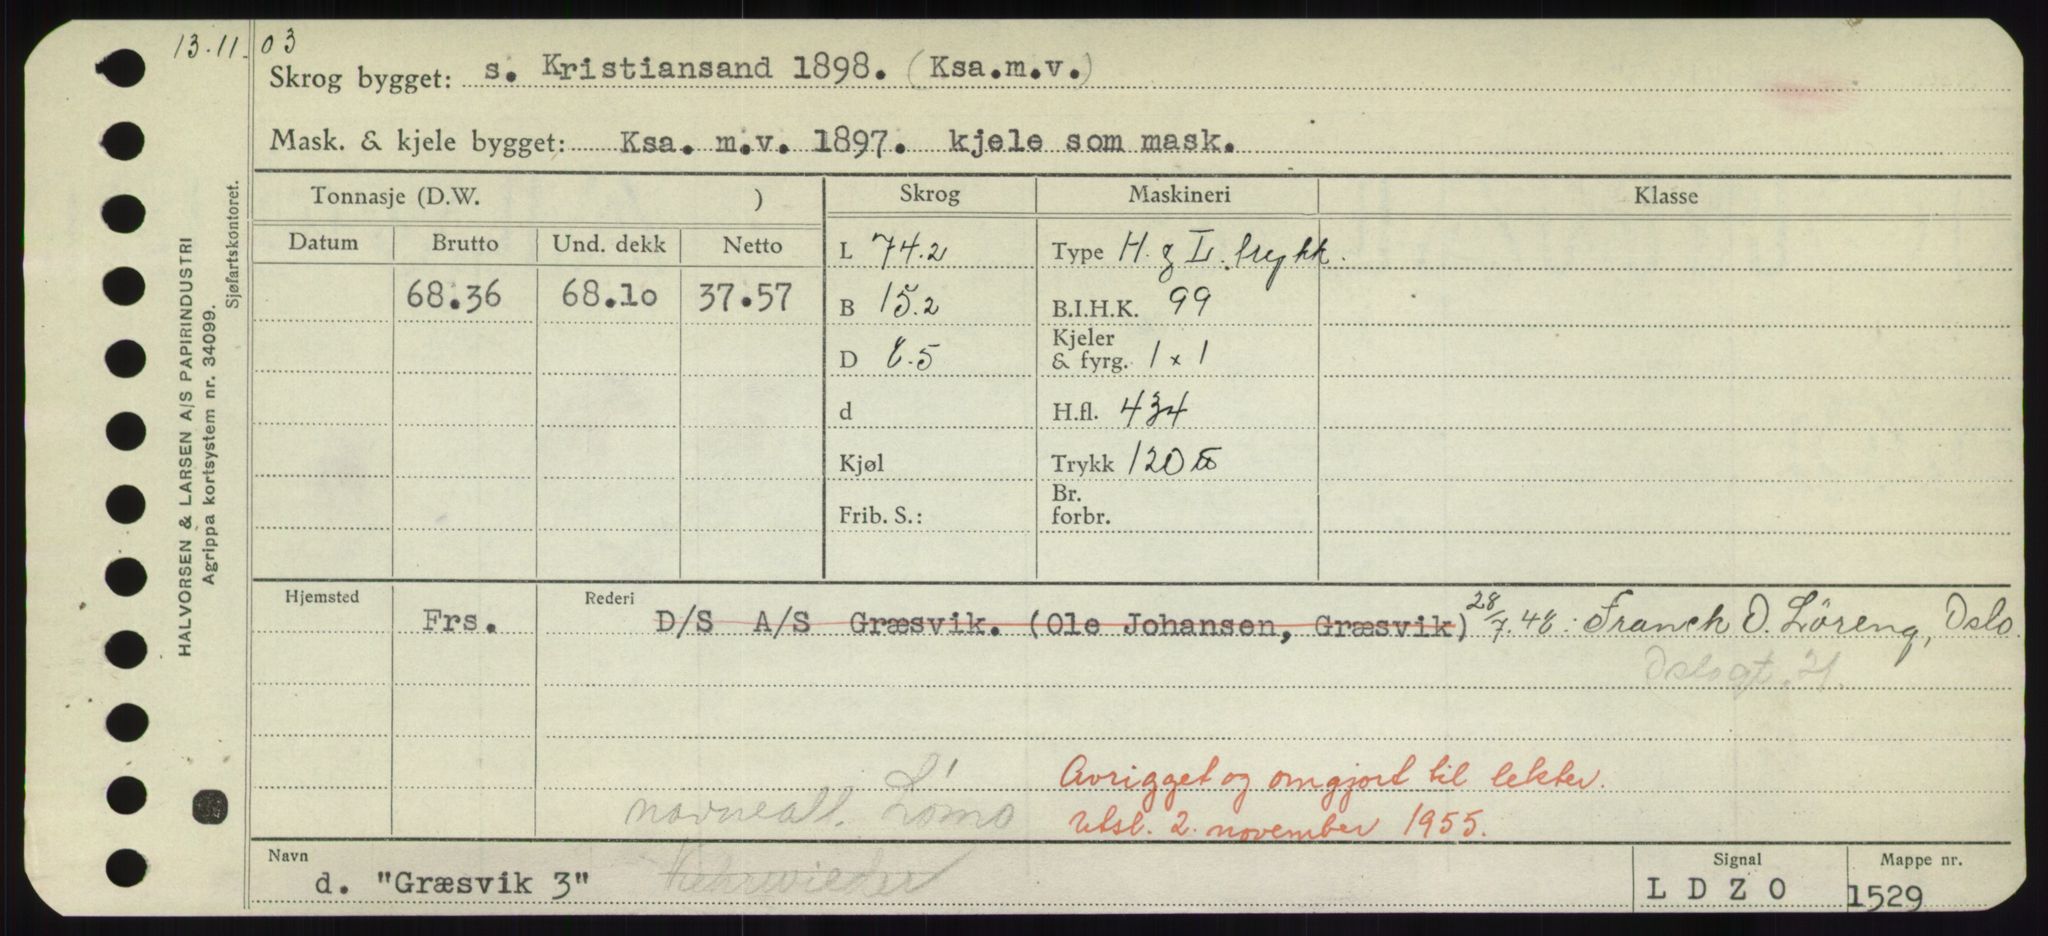 13.11.03
Skrog bygget: s. Kristiansand 1898. (Ksa.m.v.)
Mask. & kjele bygget: Ksa. m.v. 1897. kjele som mask.
Tonnasje (D.W. ) Skrog Maskineri Klasse
Datum Brutto Und. dekk Netto L 74.2 Type H. g L. trykk.
68.36 68.10 37.57 B 15.2 B.I.H.K. 99
D 8.5 Kjeler & fyrg. 1 x 1
d H.fl. 434
Kjøl Trykk 120
Frib. S.: Br. forbr.
Hjemsted Rederi
Frs. D/S A/S Græsvik. (Ole Johansen, Græsvik) 28/7.48: Franck O. Löreng, Oslo
Oslogt. 21.
Avrigget og omgjort til lekter.
navneall. Lömo Utsl. 2. november 1955.
Navn Signal Mappe nr.
d. "Græsvik 3" Kehrwieder L D Z O 1529
HALVORSEN & LARSEN A/S PAPIRINDUSTRI
Agrippa kortsystem nr. 34099.
Sjøfartskontoret.